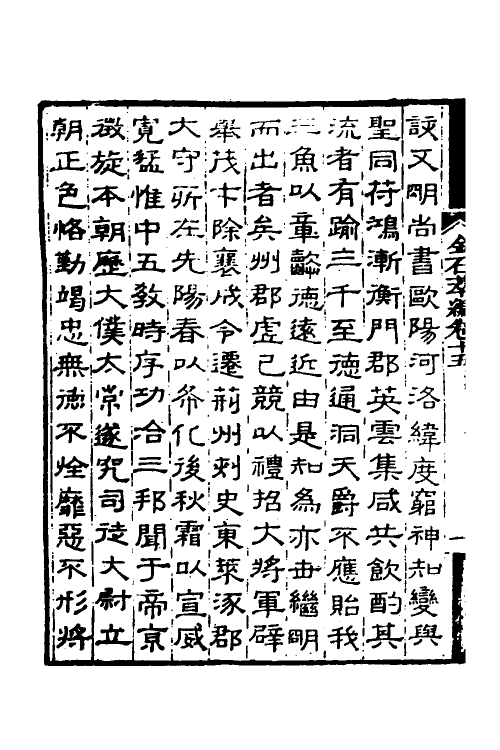 該又明尚書歐陽河洛緯度窮神知變與
聖同符鴻漸衡門郡英雲集咸共飲酌其
流者有踰三千至德通洞天爵不應貽我
三魚以章懿德遠近由是知為亦世繼明
而出者矣州郡虛己競以禮招大將軍辟
舉茂才除襄成令遷荊州刺史東萊涿郡
大守所在先陽春以布化後秋霜以宣威
寬猛惟中五教時序功洽三邦聞于帝京
徵旋本朝歷大僕太常遂究司徒大尉立
朝正色恪勤竭忠無德不烇靡惡不形將
金石萃編卷十五
一